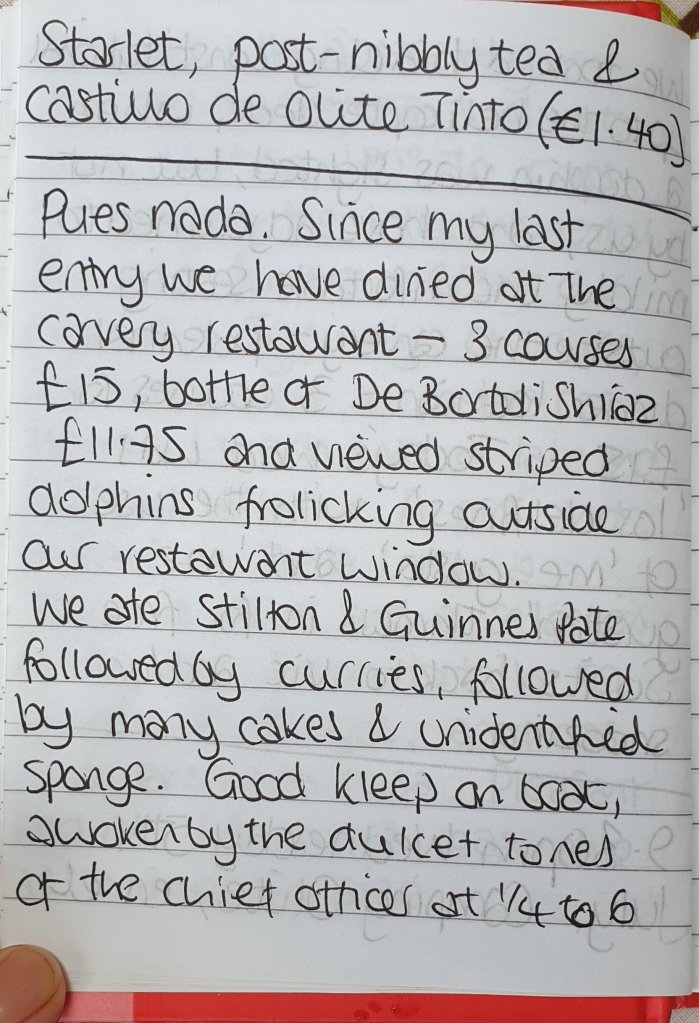 Starlet, post-nibbly tea &
Castillo de Olite Tinto (€1.40)
Pues nada. Since my last
entry we have dined at the
carvery restaurant - 3 courses
£15, bottle of De Bortoli Shiraz
£11.75 and viewed striped
dolphins frolicking outside
our restaurant window.
We ate Stilton & Guinnes Pate
followed by curries, followed
by many cakes & unidentified
sponge. Good kleep on boat,
awoken by the dulcet tones
of the chief officer at 1/4 to 6